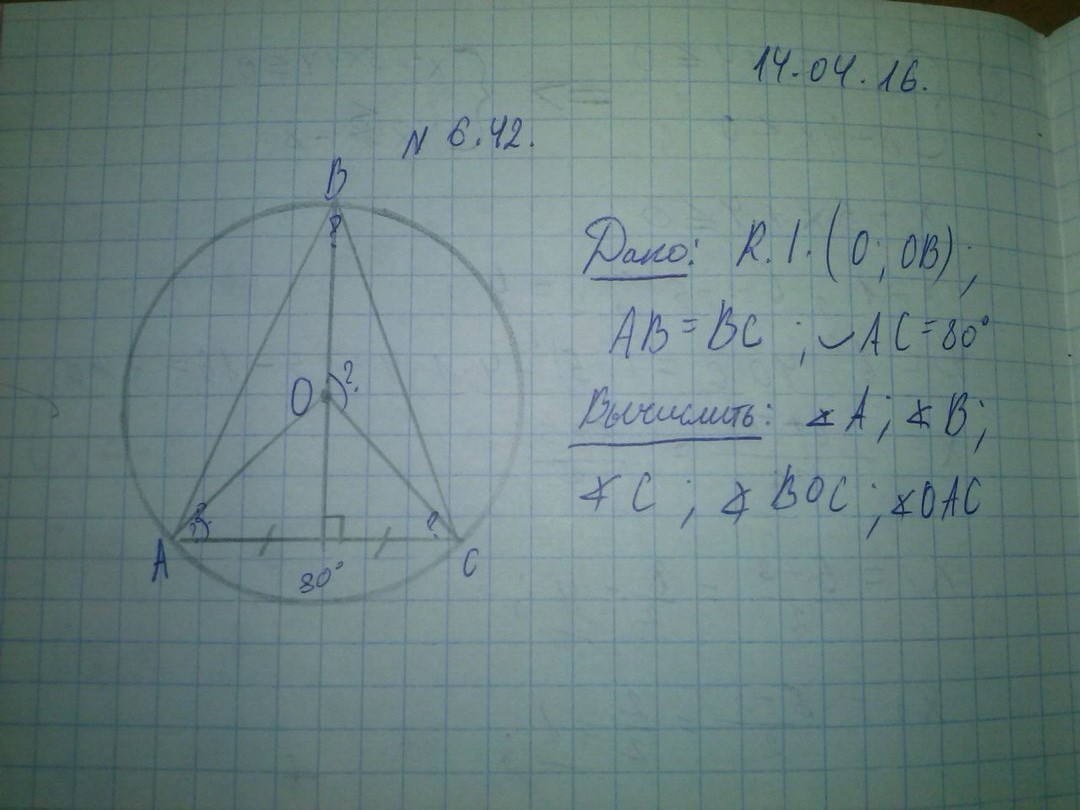 14.04.16.
N 6.42.
B
Дано: R.I. (O; OB);
AB = BC ; ◡AC = 80°
O ?
Вычислить: ∢A; ∢B;
∢C ; ∢BOC; ∢OAC
A ? C
80°